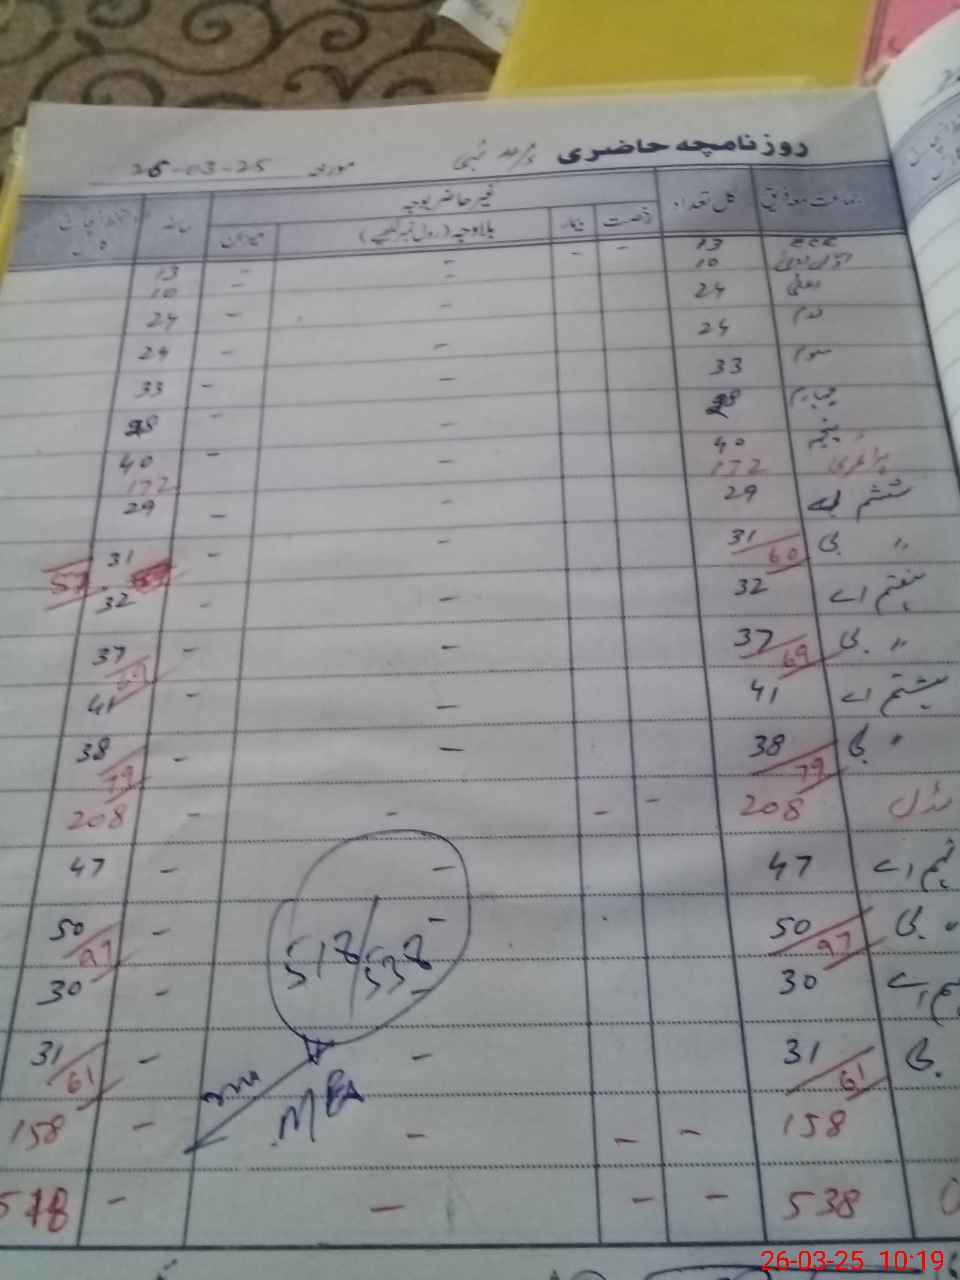 روزنامچہ حاضری
مورخہ 26-03-25
جماعت معہ فریق کل تعداد غیر حاضر بوجہ حاضر
رخصت بیمار بلاوجہ (رول نمبر لکھیے) میزان
ECE 13 - - - - 13
10 - - 10
24 - - 24
24 - - 24
سوم 33 - - 33
چہارم 28 - - 28
پنجم 40 - - 40
پرائمری 172 172
ششم اے 29 - - 29
" بی 31 60 - - 31 57
ہفتم اے 32 - - 32
" بی 37 69 - - 37 69
ہشتم اے 41 - - 41
" بی 38 79 - - 38 79
مڈل 208 - - - - 208
نہم اے 47 - - 47
" بی 50 97 - - 50 97
دہم اے 30 - - 30
بی 31 61 - - 31 61
158 - - - - 158
538 - - - - 518
518/538
MEA
26-03-25 10:19